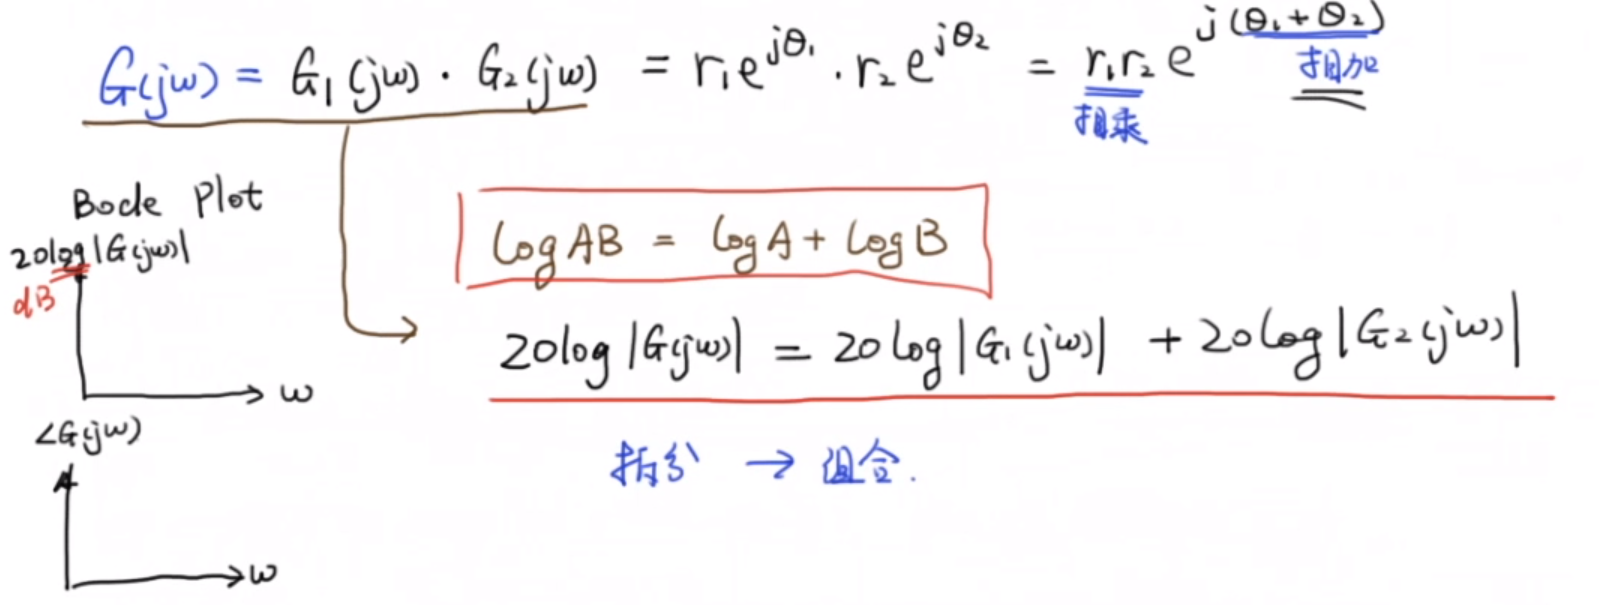 G(jω) = G₁(jω) · G₂(jω) = r₁e^{jθ₁} · r₂e^{jθ₂} = r₁r₂e^{j(θ₁+θ₂)}
相乘 相加
Bode Plot
20log|G(jω)|
dB
ω
logAB = logA + logB
20log|G(jω)| = 20log|G₁(jω)| + 20log|G₂(jω)|
∠G(jω)
ω
拆分 → 组合.